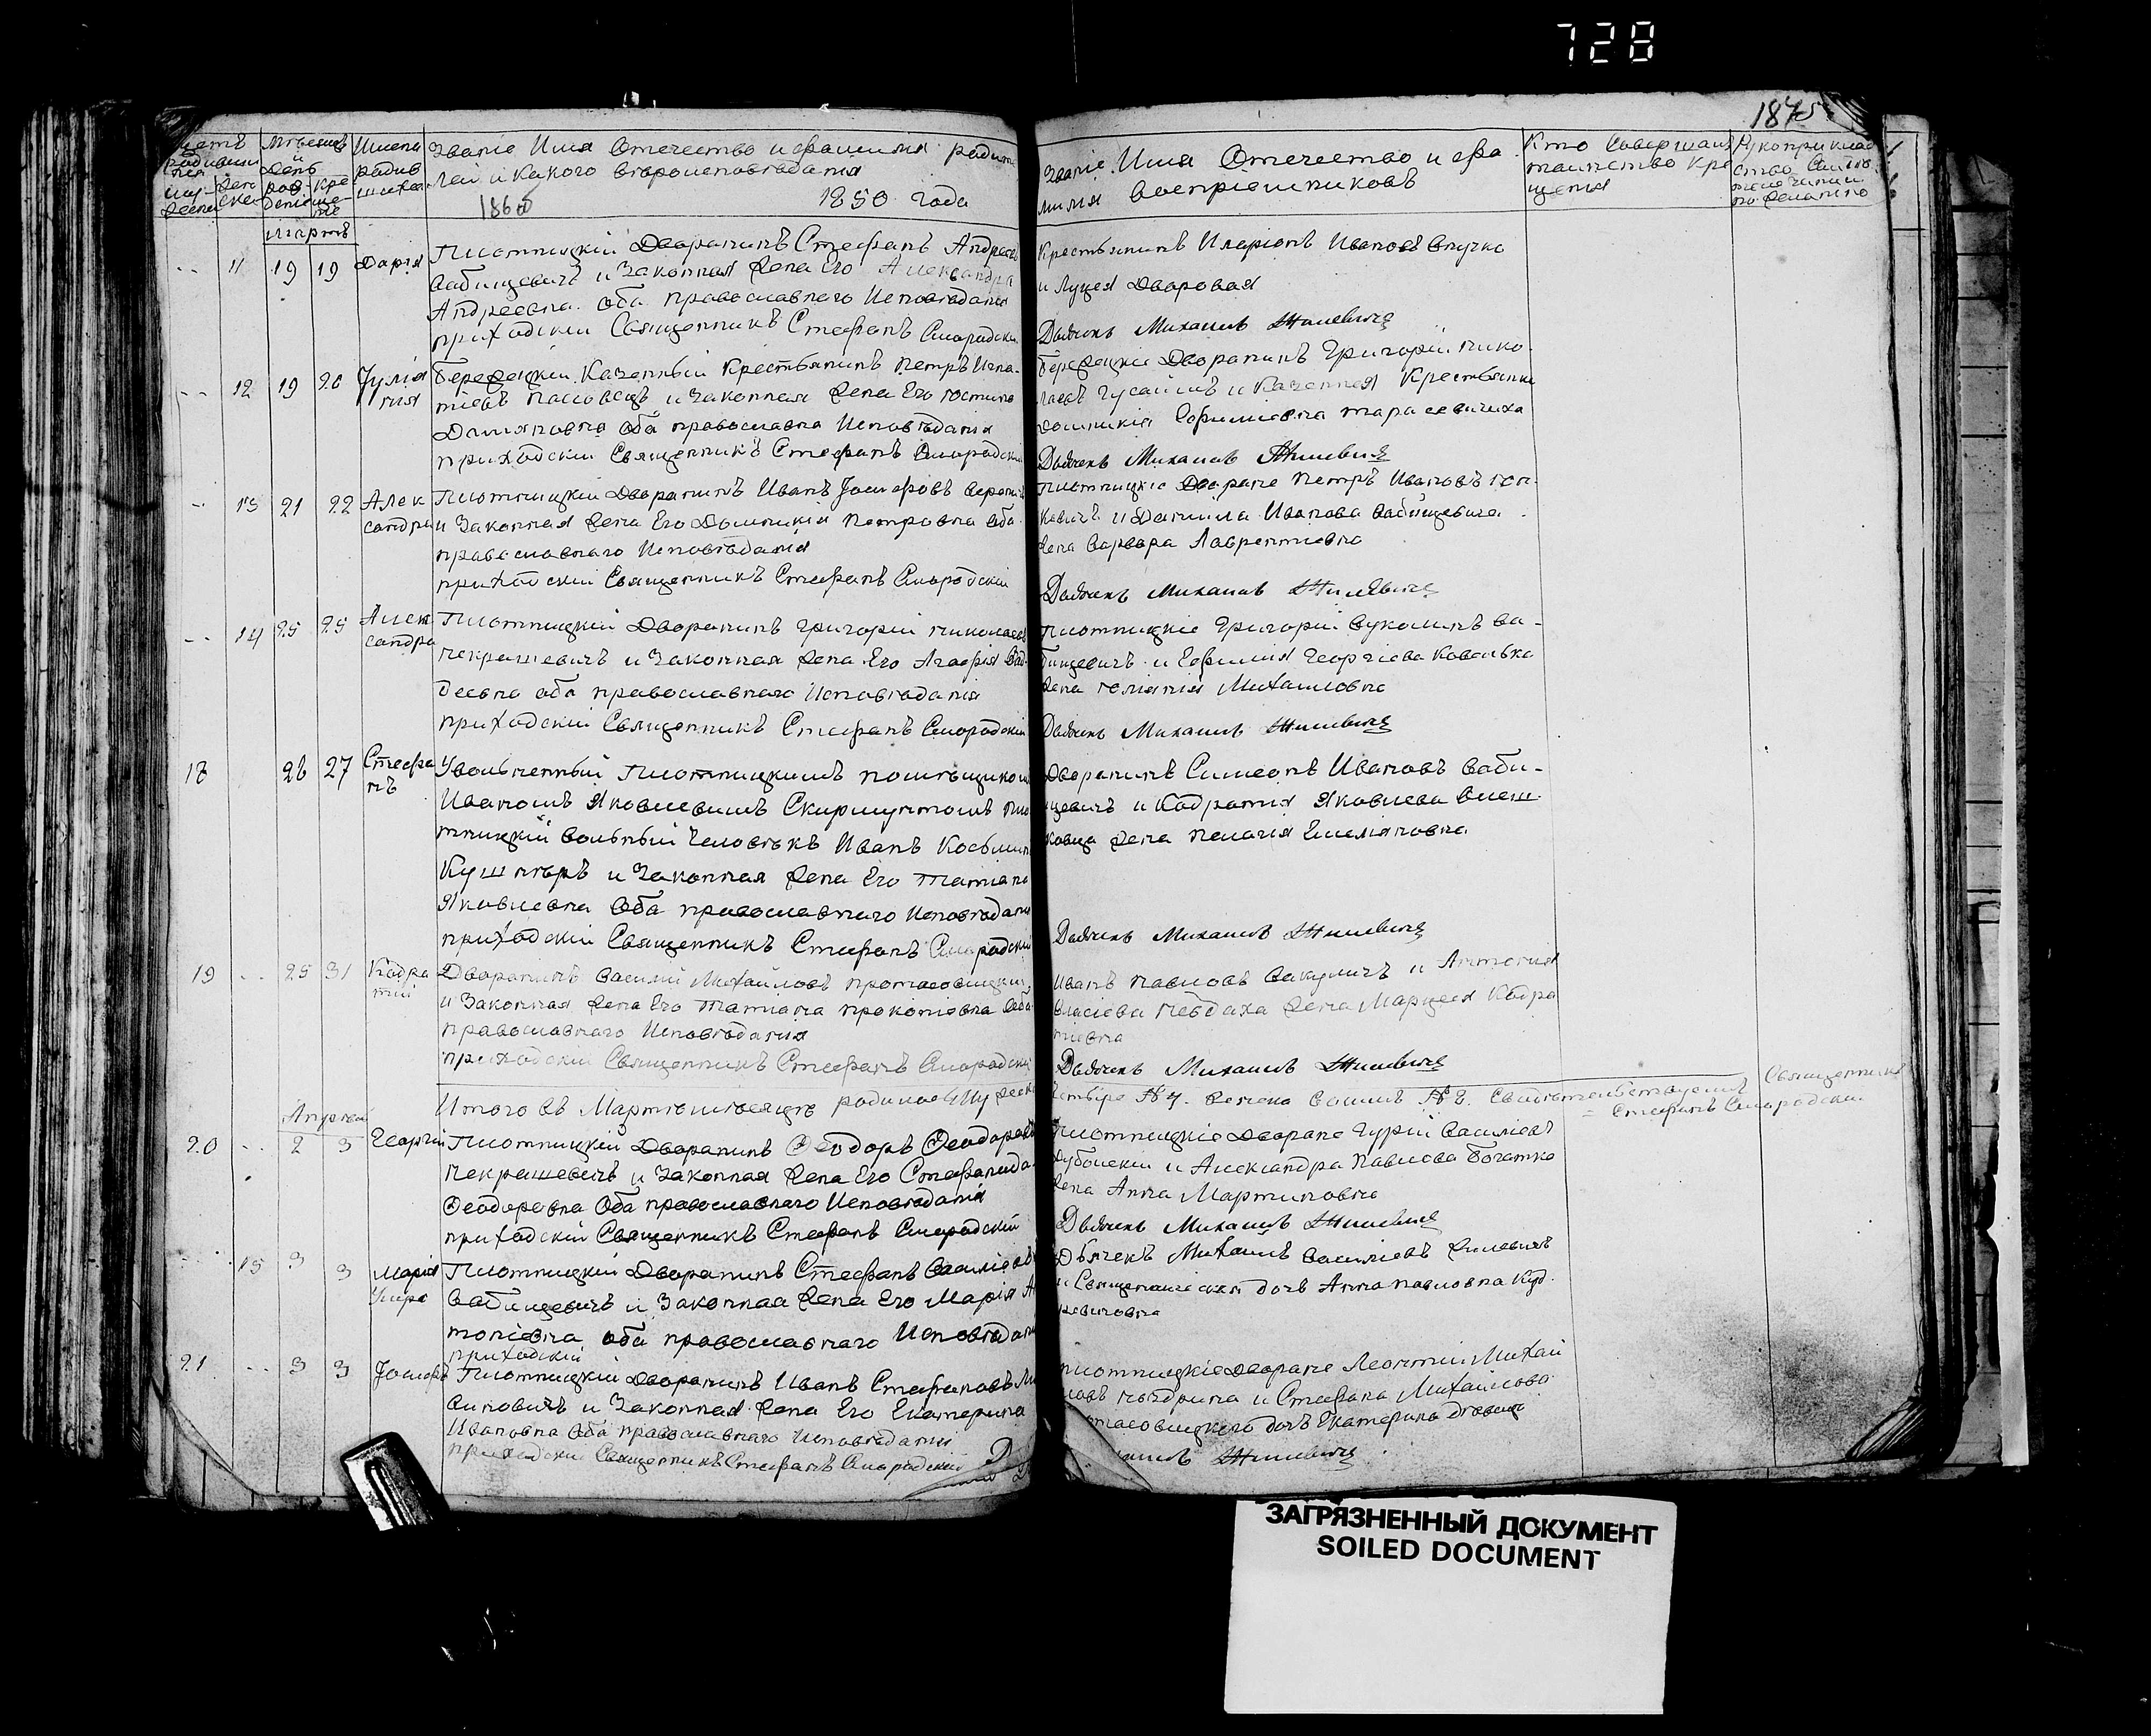 728
1875
Званіе Имя Отечество и фамилія родите
лей и какого вѣроисповѣданія
1850 года
1860
Званіе Имя Отечество и фа
милия воспріемниковъ
Кто Совершалъ
таинство Кре
щенія
Рукоприклад
ство
Мартъ
11 19 19 Дарія
Плотницкій Дворанинъ Стефанъ Андреевъ
Вабищевичъ и Законная Жена Его Александра
Андреевна оба православнаго Исповѣданія
приходскій Священникъ Стефанъ Смородскій
Крестьянинъ Иларіонъ Ивановъ
и Луцея Дворовая
Дьячекъ Михаилъ Жилевичъ
12 19 20 Іулiа
нія
Казенный Крестьянинъ Петръ Игна-
тіевъ и Законная Жена Его Юстина
Даміяновна оба православна Исповѣданія
приходскій Священникъ Стефанъ Смородскій
Дворанинъ Григорій Нико-
лаевъ Гусаимъ и Казенная Крестьянка
Домникія Ефимиевна Тарасевичиха
Дьячекъ Михаилъ Жилевичъ
13 21 22 Алек
сандра
Плотницкій Дворанинъ Иванъ Іосифовъ
и Законная Жена Его Домникія Петровна оба
православнаго Исповѣданія
приходскій Священникъ Стефанъ Смородскій
Плотницкіе Дворане Петръ Ивановъ
и Даніила Иванова Вабищевича
жена Варвара Лаврентиевна
Дьячекъ Михаилъ Жилевичъ
14 25 25 Алек
сандра
Плотницкій Дворанинъ Григорій Николаевъ
Некрашевичъ и Законная Жена Его Агафія Фад-
деевна оба православнаго Исповѣданія
приходскій Священникъ Стефанъ Смородскій
Плотницкіе Григорій Вуколинъ Ва-
бищевичъ и Ефимия Георгіева Ковалька
жена Юліанія Михаиловна
Дьячекъ Михаилъ Жилевичъ
18 26 27 Стефа
нъ
Увольненный Плотницкимъ помѣщикомъ
Иваномъ Яковлевимъ Скирмунтомъ Пло
тницкій вольный Человѣкъ Иванъ Косьминъ
Кушнѣръ и Законная Жена Его Татіана
Яковлевна Оба православнаго Исповѣданія
приходскій Священникъ Стефанъ Смородскій
Дворанинъ Симеонъ Ивановъ Ваби-
щевичъ и Кодратія Яковлева
жена Пелагія Емеліяновна
Дьячекъ Михаилъ Жилевичъ
19 25 31 Кодра
тій
Дворанинъ Василій Михайловъ Протасовицкій
и Законная Жена Его Татіана Прокопіевна оба
православнаго Исповѣданія
приходскій Священникъ Стефанъ Смородскій
Иванъ Павловъ Вакуличъ и Антонія
Власіева жена Марцеля Кодра
тіевна
Дьячекъ Михаилъ Жилевичъ
Итого въ Мартѣ мѣсяцѣ родилось Мужеска
четыре № 4. Женска восимъ № 8. Свидѣтельствуетъ Священникъ
Стефанъ Смородскій
Апрель
20 2 3 Георгій
Плотницкій Дворанинъ Ѳеодоръ Ѳеодоровъ
Некрашевичъ и Законная Жена Его Стефанида
Ѳеодоровна Оба православнаго Исповѣданія
приходскій Священникъ Стефанъ Смородскій
Плотницкіе Дворане Гурій Василіевъ
Дубойскій и Александра Павлова Богатка
жена Анна Мартиновна
Дьячекъ Михаилъ Жилевичъ
15 3 3 Марія
Плотницкій Дворанинъ Стефанъ Василіевъ
Вабищевичъ и Законнаа Жена Его Марія Ан
тоніевна оба православнаго Исповѣданія
приходскій
Дьячекъ Михаилъ Василіевъ Жилевичъ
и Священническая дочь Анна Павловна
21 3 3 Іосифъ
Плотницкій Дворанинъ Иванъ Стефановъ
и Законная Жена Его Екатерина
Ивановна Оба православнаго Исповѣданія
приходскій Священникъ Стефанъ Смородскій
Плотницкіе Дворане Леонтій Михаи
ловъ и Стефана Михаилова
Протасовицкого дочь Екатерина Дѣвица
Михаилъ Жилевичъ
ЗАГРЯЗНЕННЫЙ ДОКУМЕНТ
SOILED DOCUMENT